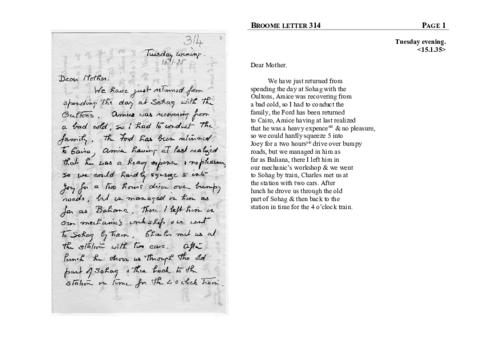 314
Tuesday evening.
15.1.35
Dear Mother.
We have just returned from
spending the day at Sohag with the
Oultons. Amice was recovering from
a bad cold, so I had to conduct the
family. The Ford has been returned
to Cairo, Amice having at last realized
that he was a heavy expense & no pleasure,
so we could hardly squeeze 5 into
Joy for a two hours drive over bumpy
roads, but we managed in him as
far as Baliana. There I left him in
our mechanic's workshop & we went
to Sohag by train. Charles met us at
the station with two cars. After
lunch he drove us through the old
part of Sohag & then back to the
station in time for the 4 o'clock train.
BROOME LETTER 314 PAGE 1
Tuesday evening.
<15.1.35>
Dear Mother,
We have just returned from
spending the day at Sohag with the
Oultons, Amice was recovering from
a bad cold, so I had to conduct
the family, the Ford has been returned
to Cairo, Amice having at last realized
that he was a heavy expence & no pleasure,
so we could hardly squeeze 5 into
Joey for a two hours drive over bumpy
roads, but we managed in him as
far as Baliana, there I left him in
our mechanic's workshop & we went
to Sohag by train, Charles met us at
the station with two cars. After
lunch he drove us through the old
part of Sohag & then back to the
station in time for the 4 o'clock train.